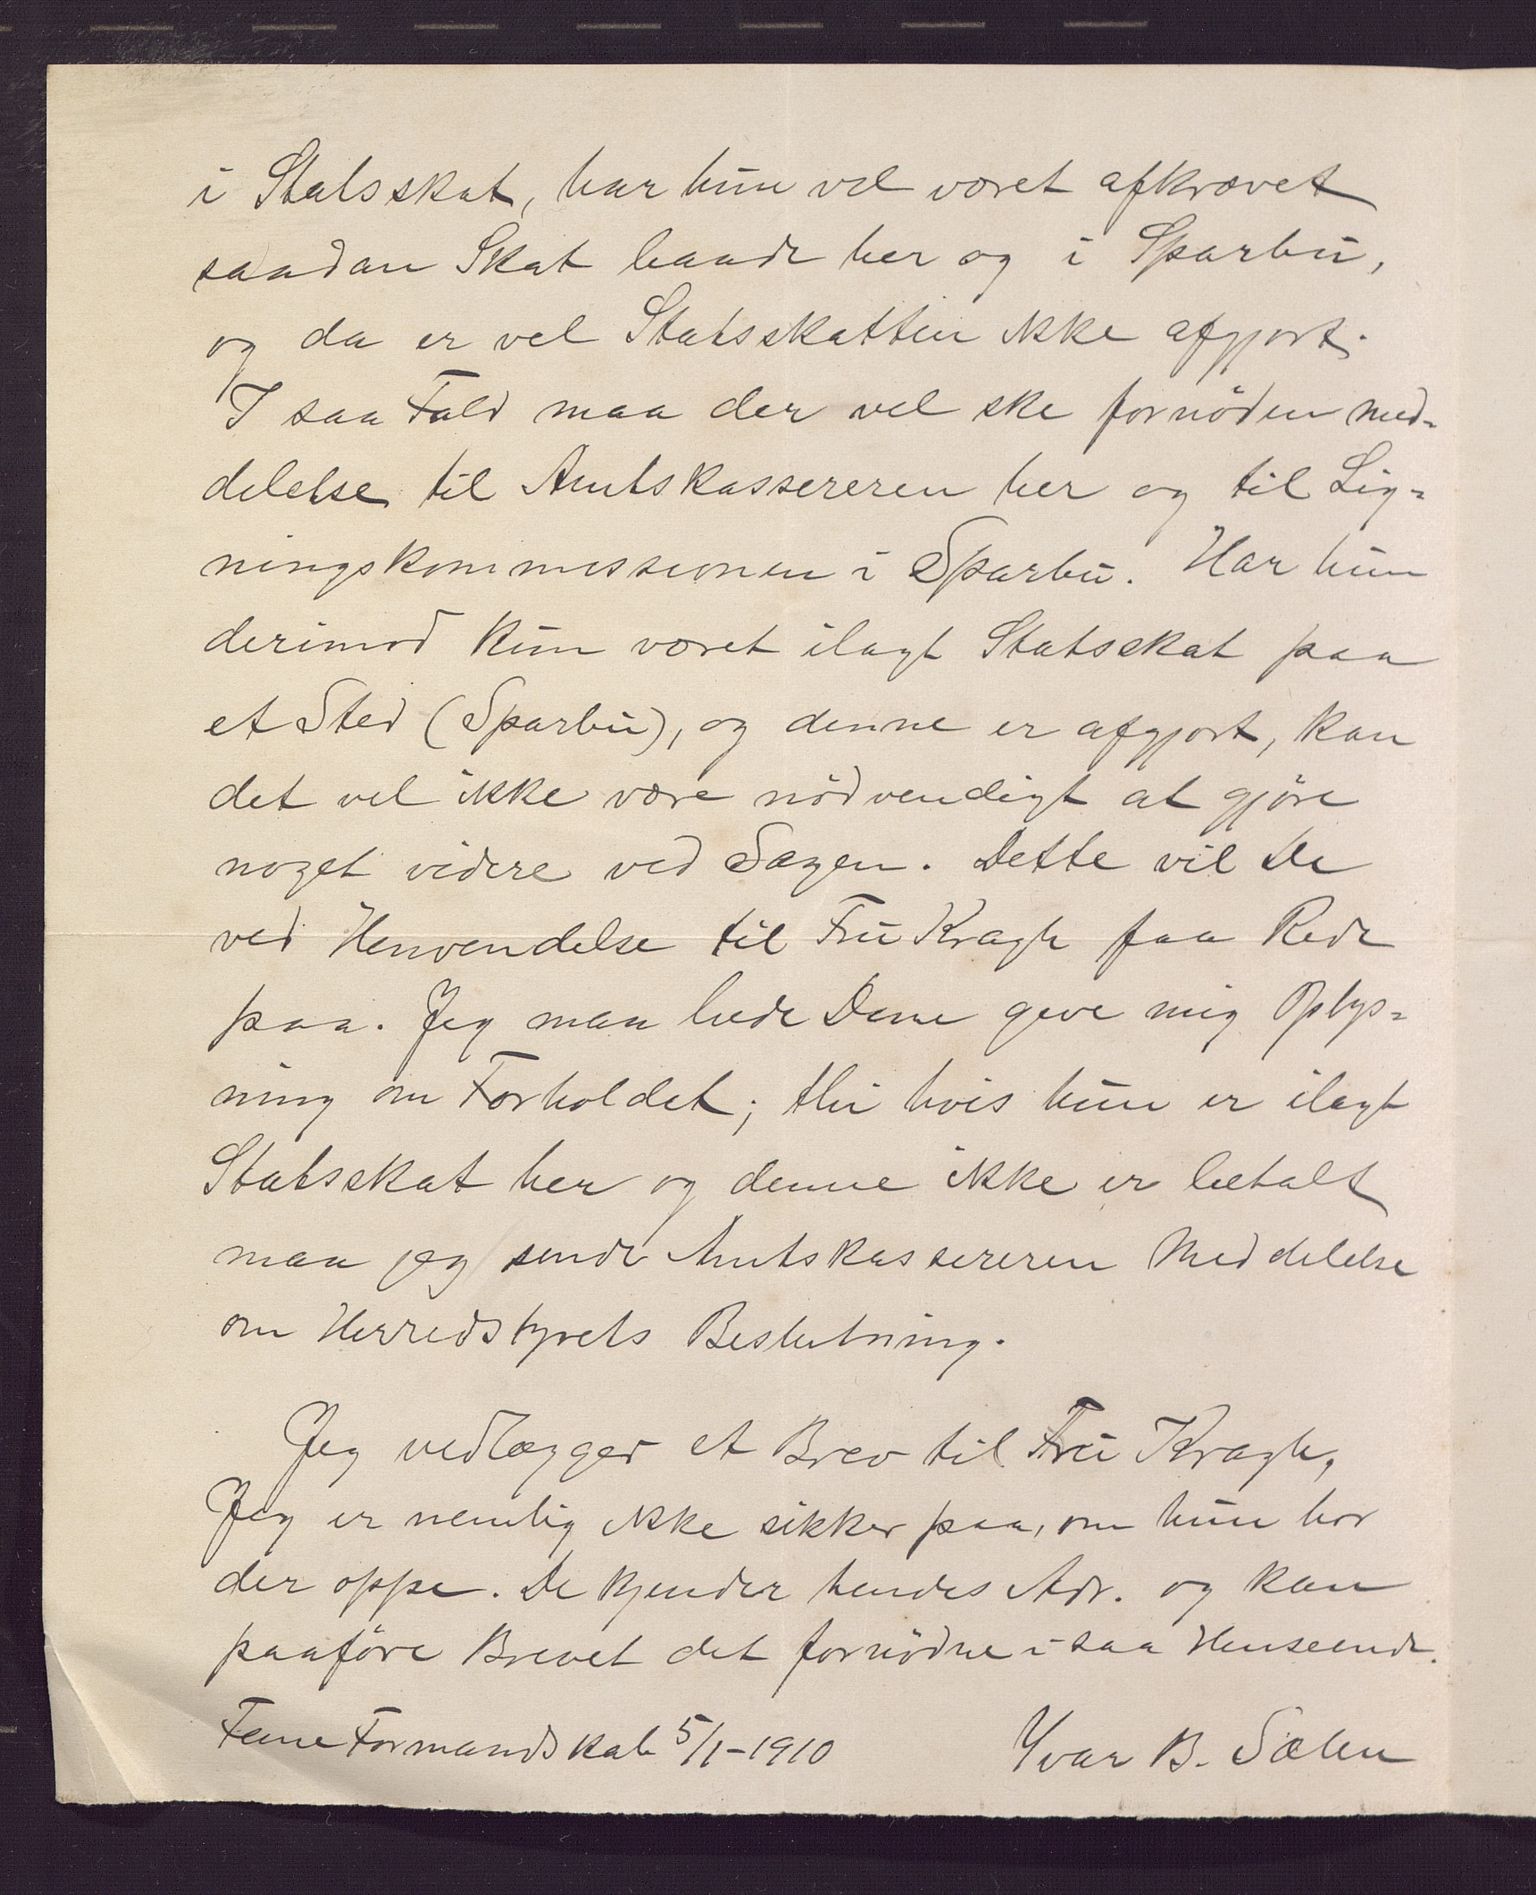 i Statsskat, har hun vel været afkrævet
saadan Skat baade her og i Sparbu,
og da er vel Statsskatten ikke afgjort.
I saa Fald maa der vel ske fornöden med-
delelse til Amtskassereren her og til Lig-
ningskommissionen i Sparbu. Har hun
derimod kun været ilagt Statsskat paa
et Sted (Sparbu), og denne er afgjort, kan
det vel ikke være nödvendigt at gjöre
noget videre ved Sagen. Dette vil De
ved Henvendelse til Fru Kragh faa Rede
paa. Jeg maa bede Dem give mig Oplys-
ning om Forholdet; thi hvis hun er ilagt
Statsskat her og denne ikke er betalt
maa jeg sende Amtskassereren Meddelelse
om Herredstyrets Beslutning.
Jeg vedlægger et Brev til Fru Kragh,
Jeg er nemlig ikke sikker paa, om hun bor
der oppe. De kjender hendes Adr. og kan
paaföre Brevet det fornödne i saa Henseende.
Formandskab 5/1-1910 Yvar B. Sælen